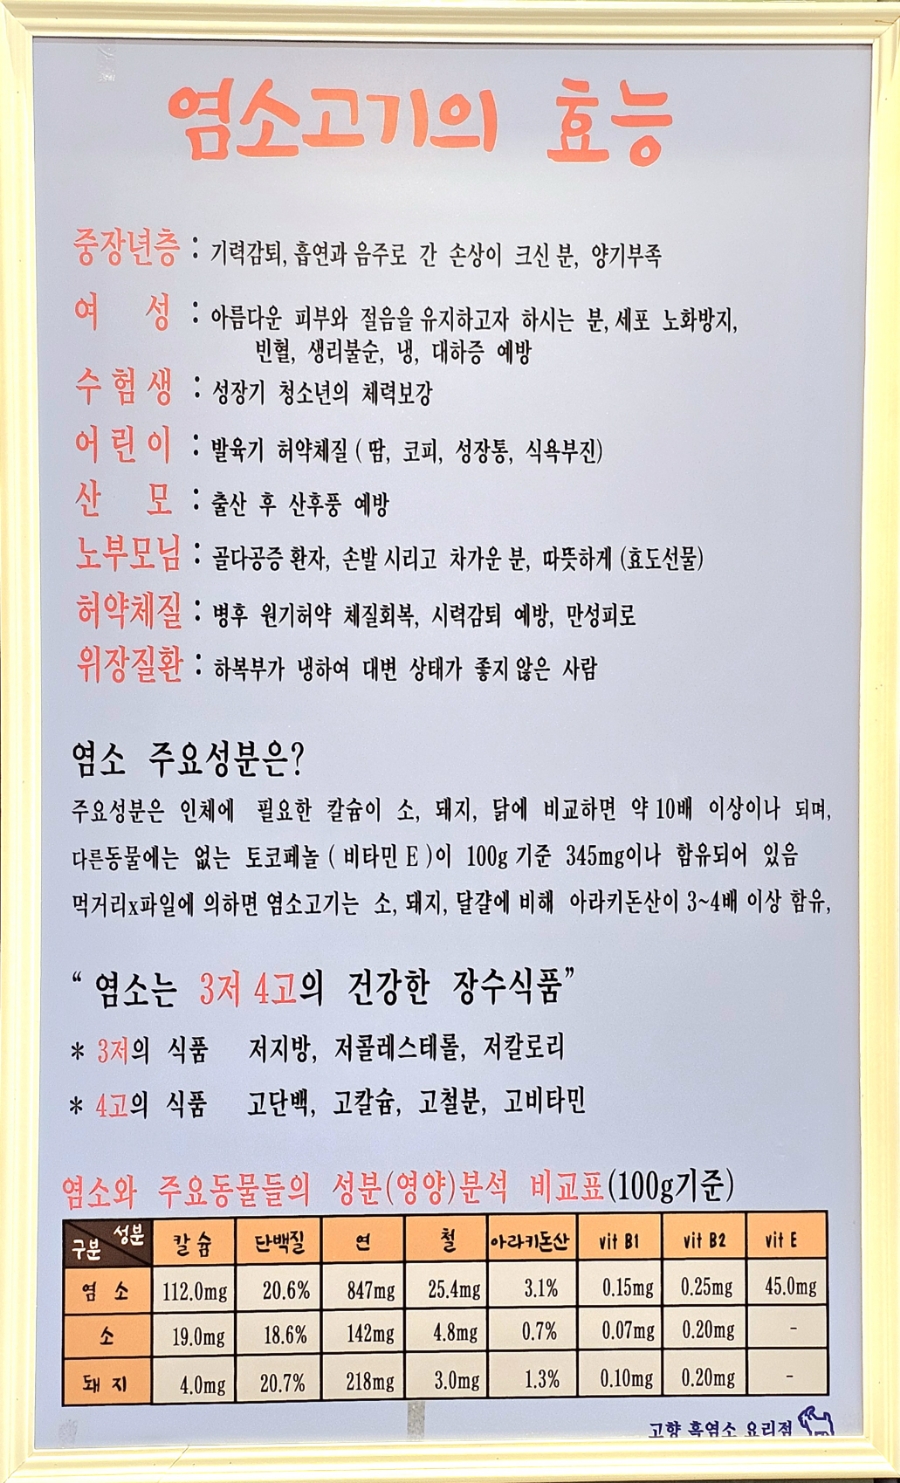 염소고기의 효능
중장년층 : 기력감퇴, 흡연과 음주로 간 손상이 크신 분, 양기부족
여 성 : 아름다운 피부와 절음을 유지하고자 하시는 분, 세포 노화방지,
빈혈, 생리불순, 냉, 대하증 예방
수험생 : 성장기 청소년의 체력보강
어린이 : 발육기 허약체질 ( 땀, 코피, 성장통, 식욕부진)
산 모 : 출산 후 산후풍 예방
노부모님 : 골다공증 환자, 손발 시리고 차가운 분, 따뜻하게 (효도선물)
허약체질 : 병후 원기허약 체질회복, 시력감퇴 예방, 만성피로
위장질환 : 하복부가 냉하여 대변 상태가 좋지 않은 사람
염소 주요성분은?
주요성분은 인체에 필요한 칼슘이 소, 돼지, 닭에 비교하면 약 10배 이상이나 되며,
다른동물에는 없는 토코페놀 ( 비타민 E )이 100g 기준 345mg이나 함유되어 있음
먹거리x파일에 의하면 염소고기는 소, 돼지, 달걀에 비해 아라키돈산이 3~4배 이상 함유,
“ 염소는 3저 4고의 건강한 장수식품”
* 3저의 식품 저지방, 저콜레스테롤, 저칼로리
* 4고의 식품 고단백, 고칼슘, 고철분, 고비타민
염소와 주요동물들의 성분(영양)분석 비교표(100g기준)
구분 성분 칼슘 단백질 연 철 아라키돈산 vit B1 vit B2 vit E
염 소 112.0mg 20.6% 847mg 25.4mg 3.1% 0.15mg 0.25mg 45.0mg
소 19.0mg 18.6% 142mg 4.8mg 0.7% 0.07mg 0.20mg -
돼 지 4.0mg 20.7% 218mg 3.0mg 1.3% 0.10mg 0.20mg -
고향 흑염소 요리점